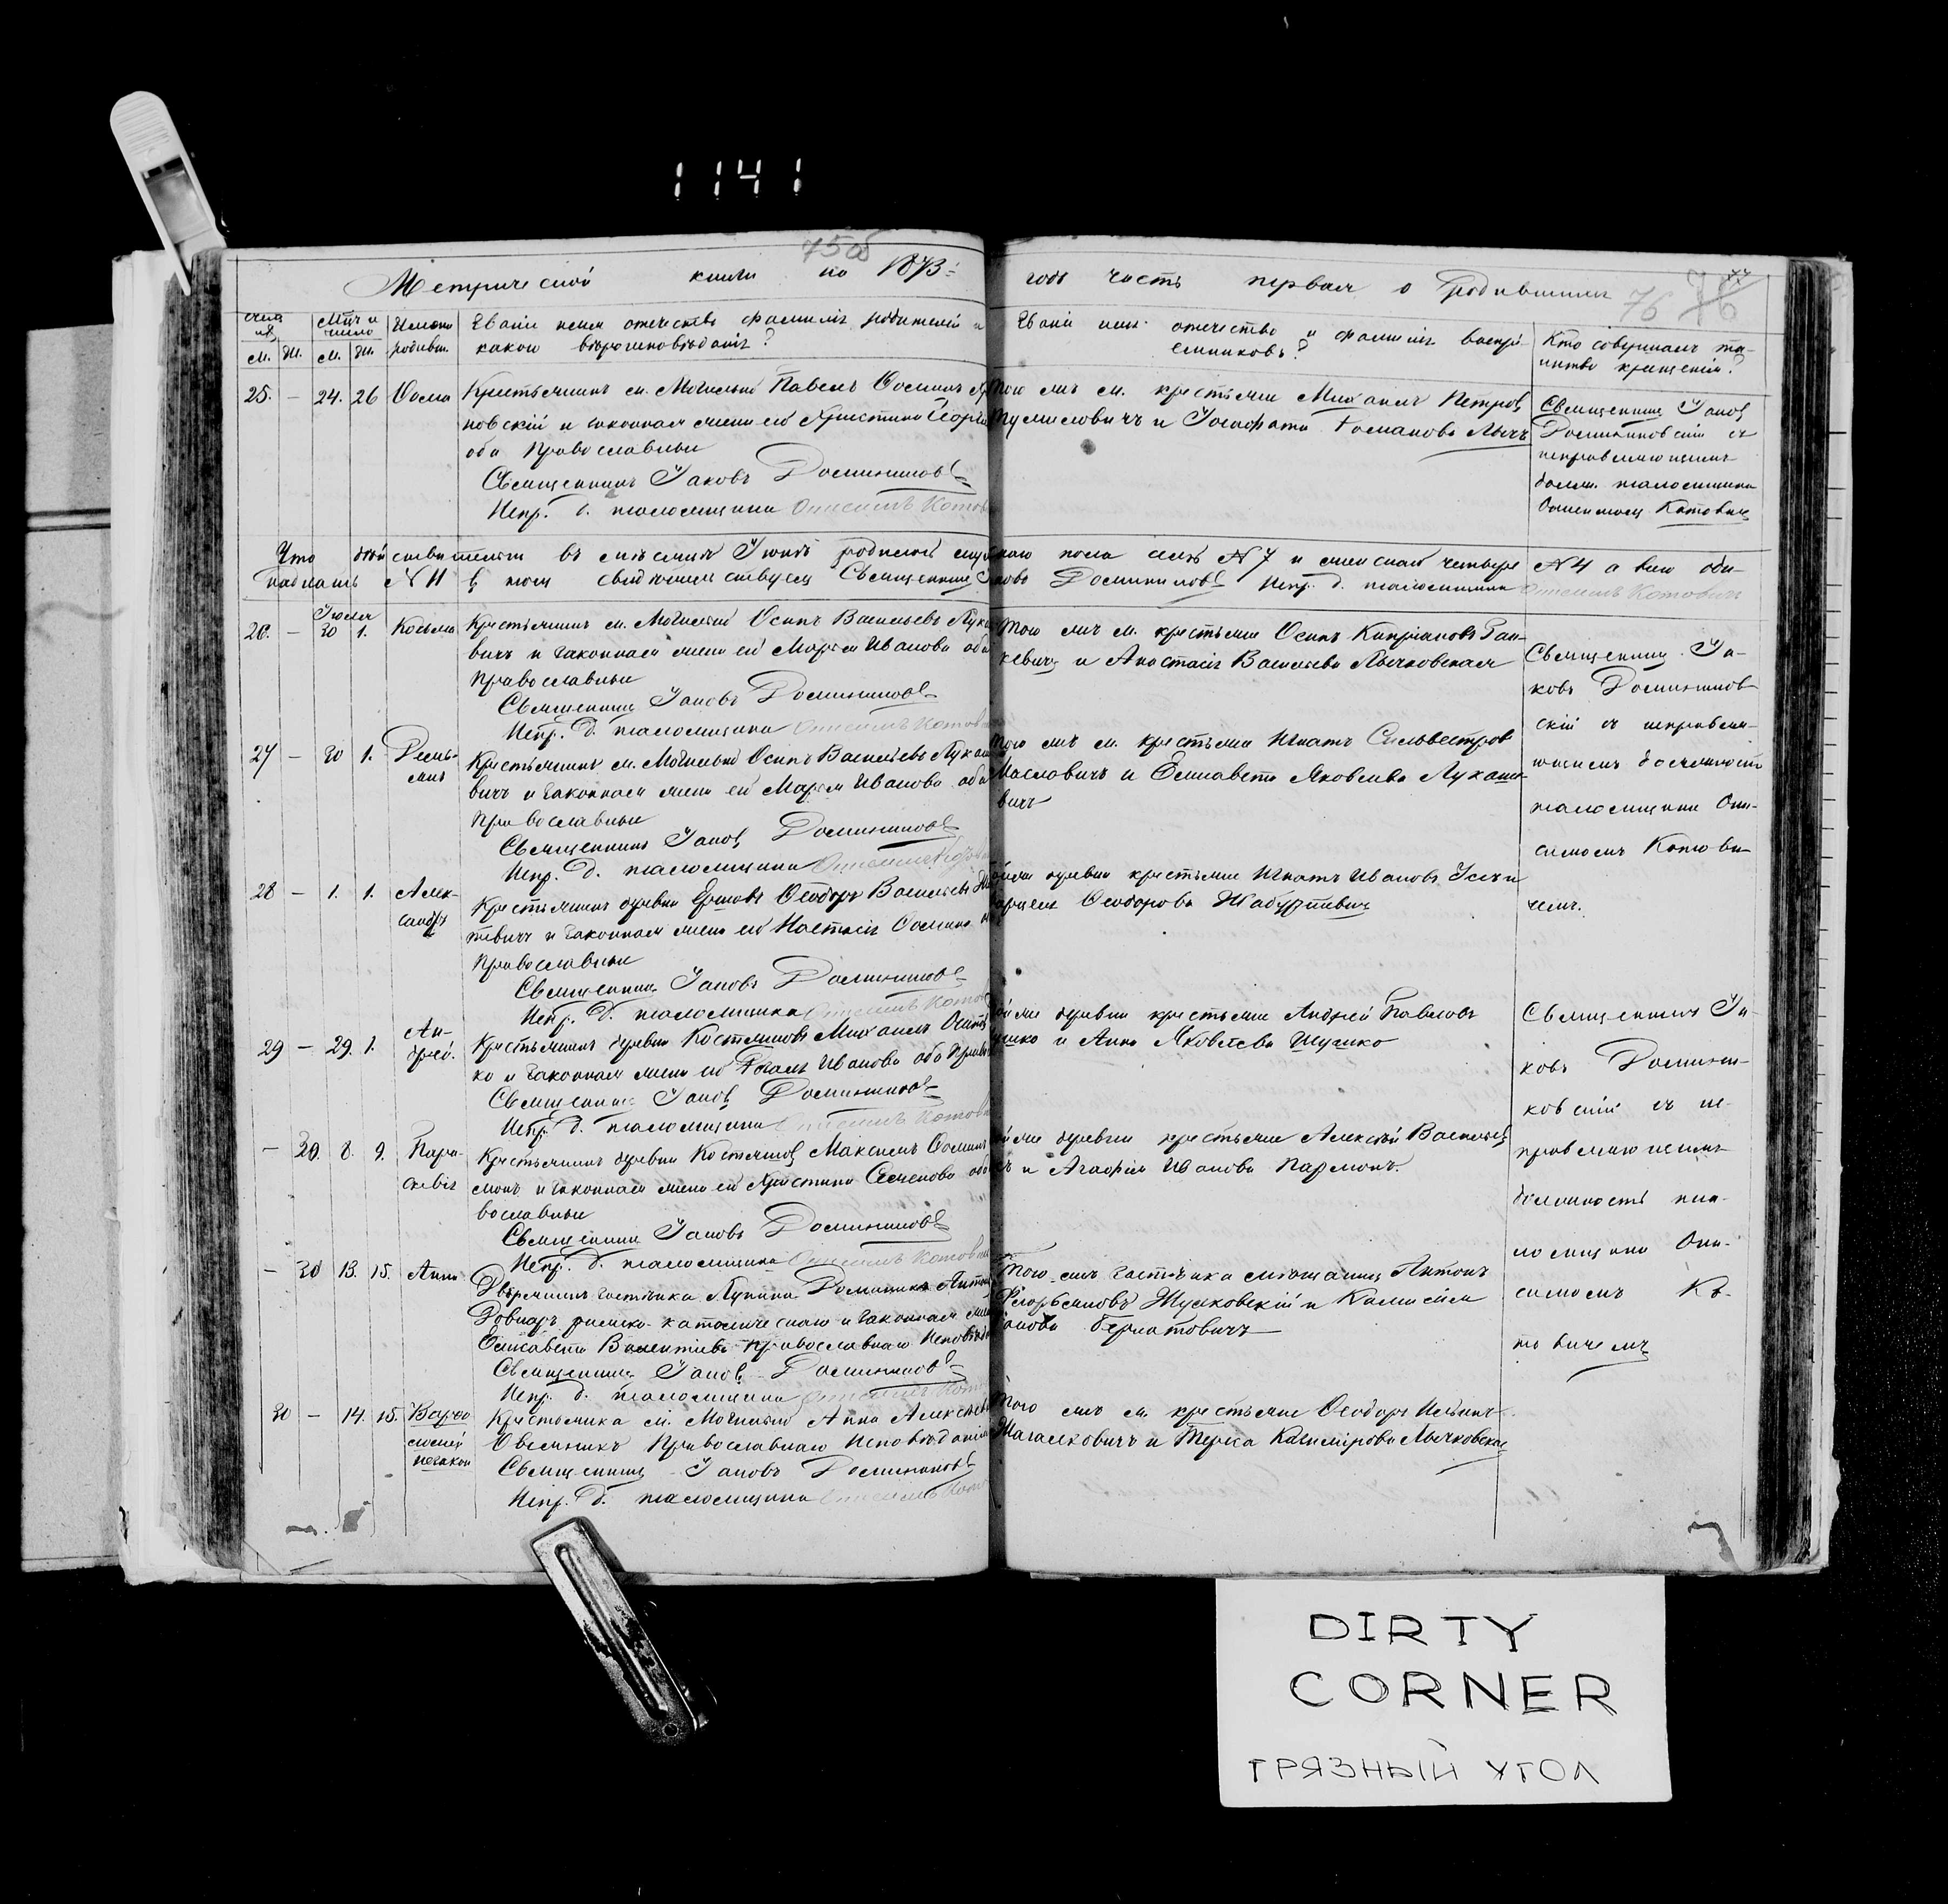 1141
75об
Метрической книги на 1873 года часть первая о родившихся
76
счетъ Мѣс. и число Имена родивш. Званіе имя отечество фамилія родителей и какого вѣроисповѣданія?
Званіе имя отечество и фамилія воспріемниковъ?
Кто совершалъ таинство крещенія?
м. ж. м. ж.
25. – 24. 26 Ѳома Крестьянинъ м. Могильно Павелъ Ѳоминъ
новскій и законная жена его Христина
оба Православные
Священникъ Іаковъ Домиников
Испр. д. псаломщика Онисимъ Котов
Того же м. крестьяне Михаилъ Петровъ
и Іосафата Романова Лычъ
Священникъ Іаковъ
Доминиковскій съ
исправляющимъ
должн. псаломщика
Онисимомъ Котовичемъ
Что дѣйствительно въ мѣсяцѣ Іюнѣ родилось мужескаго пола семь №7 и женскаго четыре №4 а всего обо-
№ 11 въ томъ свидѣтельствуемъ Священникъ Іаковъ Доминиковъ Испр. д. псаломщика Онисимъ Котовичъ
Іюля
26. – 30 1. Косьма Крестьянинъ м. Могильно Осипъ Васильевъ Лука
вичъ и законная жена его Марья Иванова оба
Православные
Священникъ Іаковъ Домиников
Испр. д. псаломщика Онисимъ Котов
Того же м. крестьяне Осипъ Кипріановъ Ган-
кевичъ и Анастасія Васильева Лычковская
Священникъ Іа-
ковъ Домиников-
скій съ исправля-
ющимъ должность
псаломщика Они-
симомъ Котови-
чемъ.
27 – 30 1. Демь-
янъ
Крестьянинъ м. Могильно Осипъ Васильевъ Лукаш
вичъ и законная жена его Марья Иванова оба
Православные
Священникъ Іаковъ Домиников
Испр. д. псаломщика Онисимъ Котов
Того же м. крестьяне Игнатъ Сильвестров
Масловичъ и Елисавета Яковлева Лукаше-
вичъ
28 – 1. 1. Алек-
сандръ
Крестьянинъ деревни Ѳеодоръ Васильевъ
тевичъ и законная жена его Настасія Ѳомина
Православные
Священникъ Іаковъ Домиников
Испр. д. псаломщика Онисимъ Котов
деревни крестьяне Игнатъ Ивановъ
Ѳеодорова
29 – 29. 1. Ан-
дрей.
Крестьянинъ деревни Костешовъ Михаилъ Осиповъ
ко и законная жена его Иванова оба Право
Священникъ Іаковъ Домиников
Испр. д. псаломщика Онисимъ Котов
деревни крестьяне Андрей Павловъ
и Анна Яковлева Шушко
Священникъ Іа-
ковъ Домини-
ковскій съ ис-
правляющимъ
должность пса-
ломщика Они-
симомъ Ко-
товичемъ
– 29. 8. 9. Пара-
скевія
Крестьянинъ деревни Костешовъ Максимъ Ѳоминъ
монъ и законная жена его Христина Семенова оба
вославные
Священникъ Іаковъ Домиников
Испр. д. псаломщика Онисимъ Котови
деревни крестьяне Алексѣй Васильевъ
и Агафія Иванова Пармонъ.
– 30 13. 15. Анна
Дворянинъ застѣнка Лунина Доминикъ Антон
Ровнаръ римско-католическаго и законная жена
Елисавета Викентьева православнаго исповѣдан
Священникъ Іаковъ Домиников
Испр. д. псаломщика Онисимъ Кото
Того же застѣнка мѣщанинъ Антонъ
Жуковскій и Камилія
Бернатовичъ
30 – 14. 15. Варѳо
ломей
незакон
Крестьянка м. Могильно Анна Алексѣева
Овсяникъ Православнаго исповѣданія
Священникъ Іаковъ Домиников
Испр. д. псаломщика Онисимъ Кото
Того же м. крестьяне Ѳеодоръ Ильинъ
Шагалковичъ и Тереса Казимірова Лычковская
DIRTY
CORNER
ГРЯЗНЫЙ УГОЛ